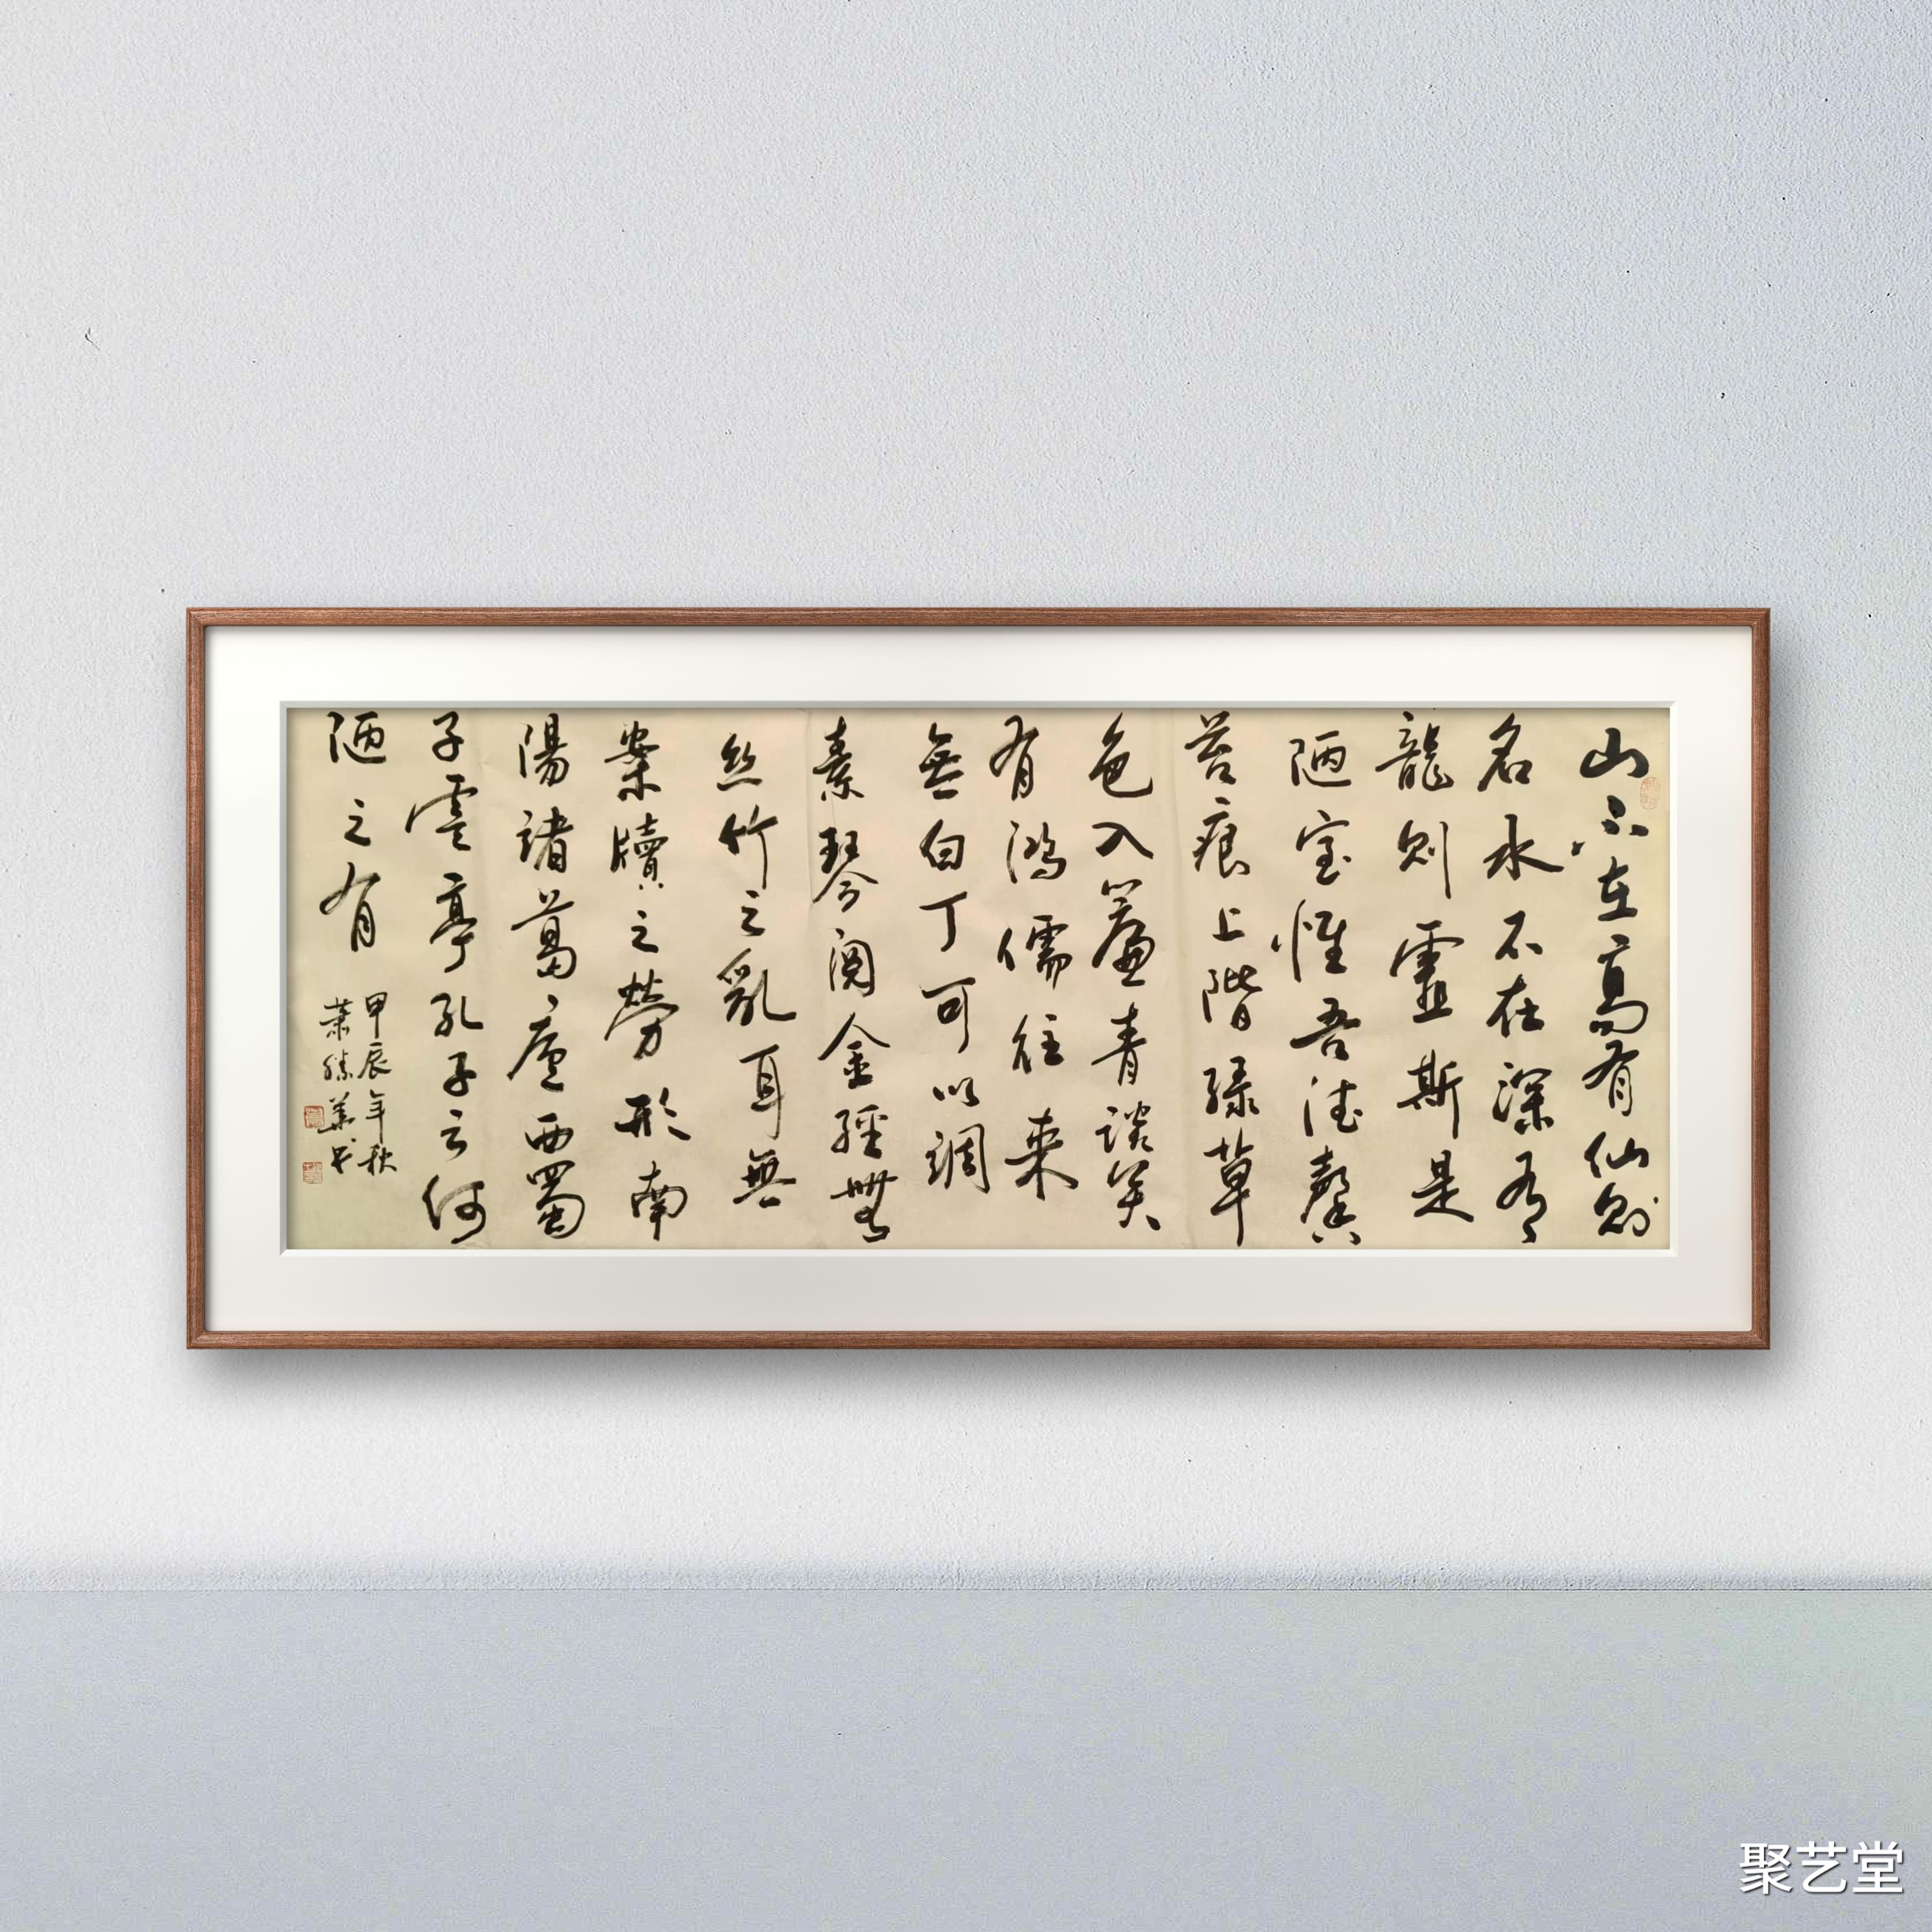 山不在高有仙則
名水不在深有
龍則靈斯是
陋室惟吾德馨
苔痕上階緑草
色入簾青談笑
有鴻儒往来
無白丁可以調
素琴閲金經無
絲竹之亂耳無
案牘之勞形南
陽諸葛廬西蜀
子雲亭孔子云何
陋之有
甲辰年秋
书
聚艺堂